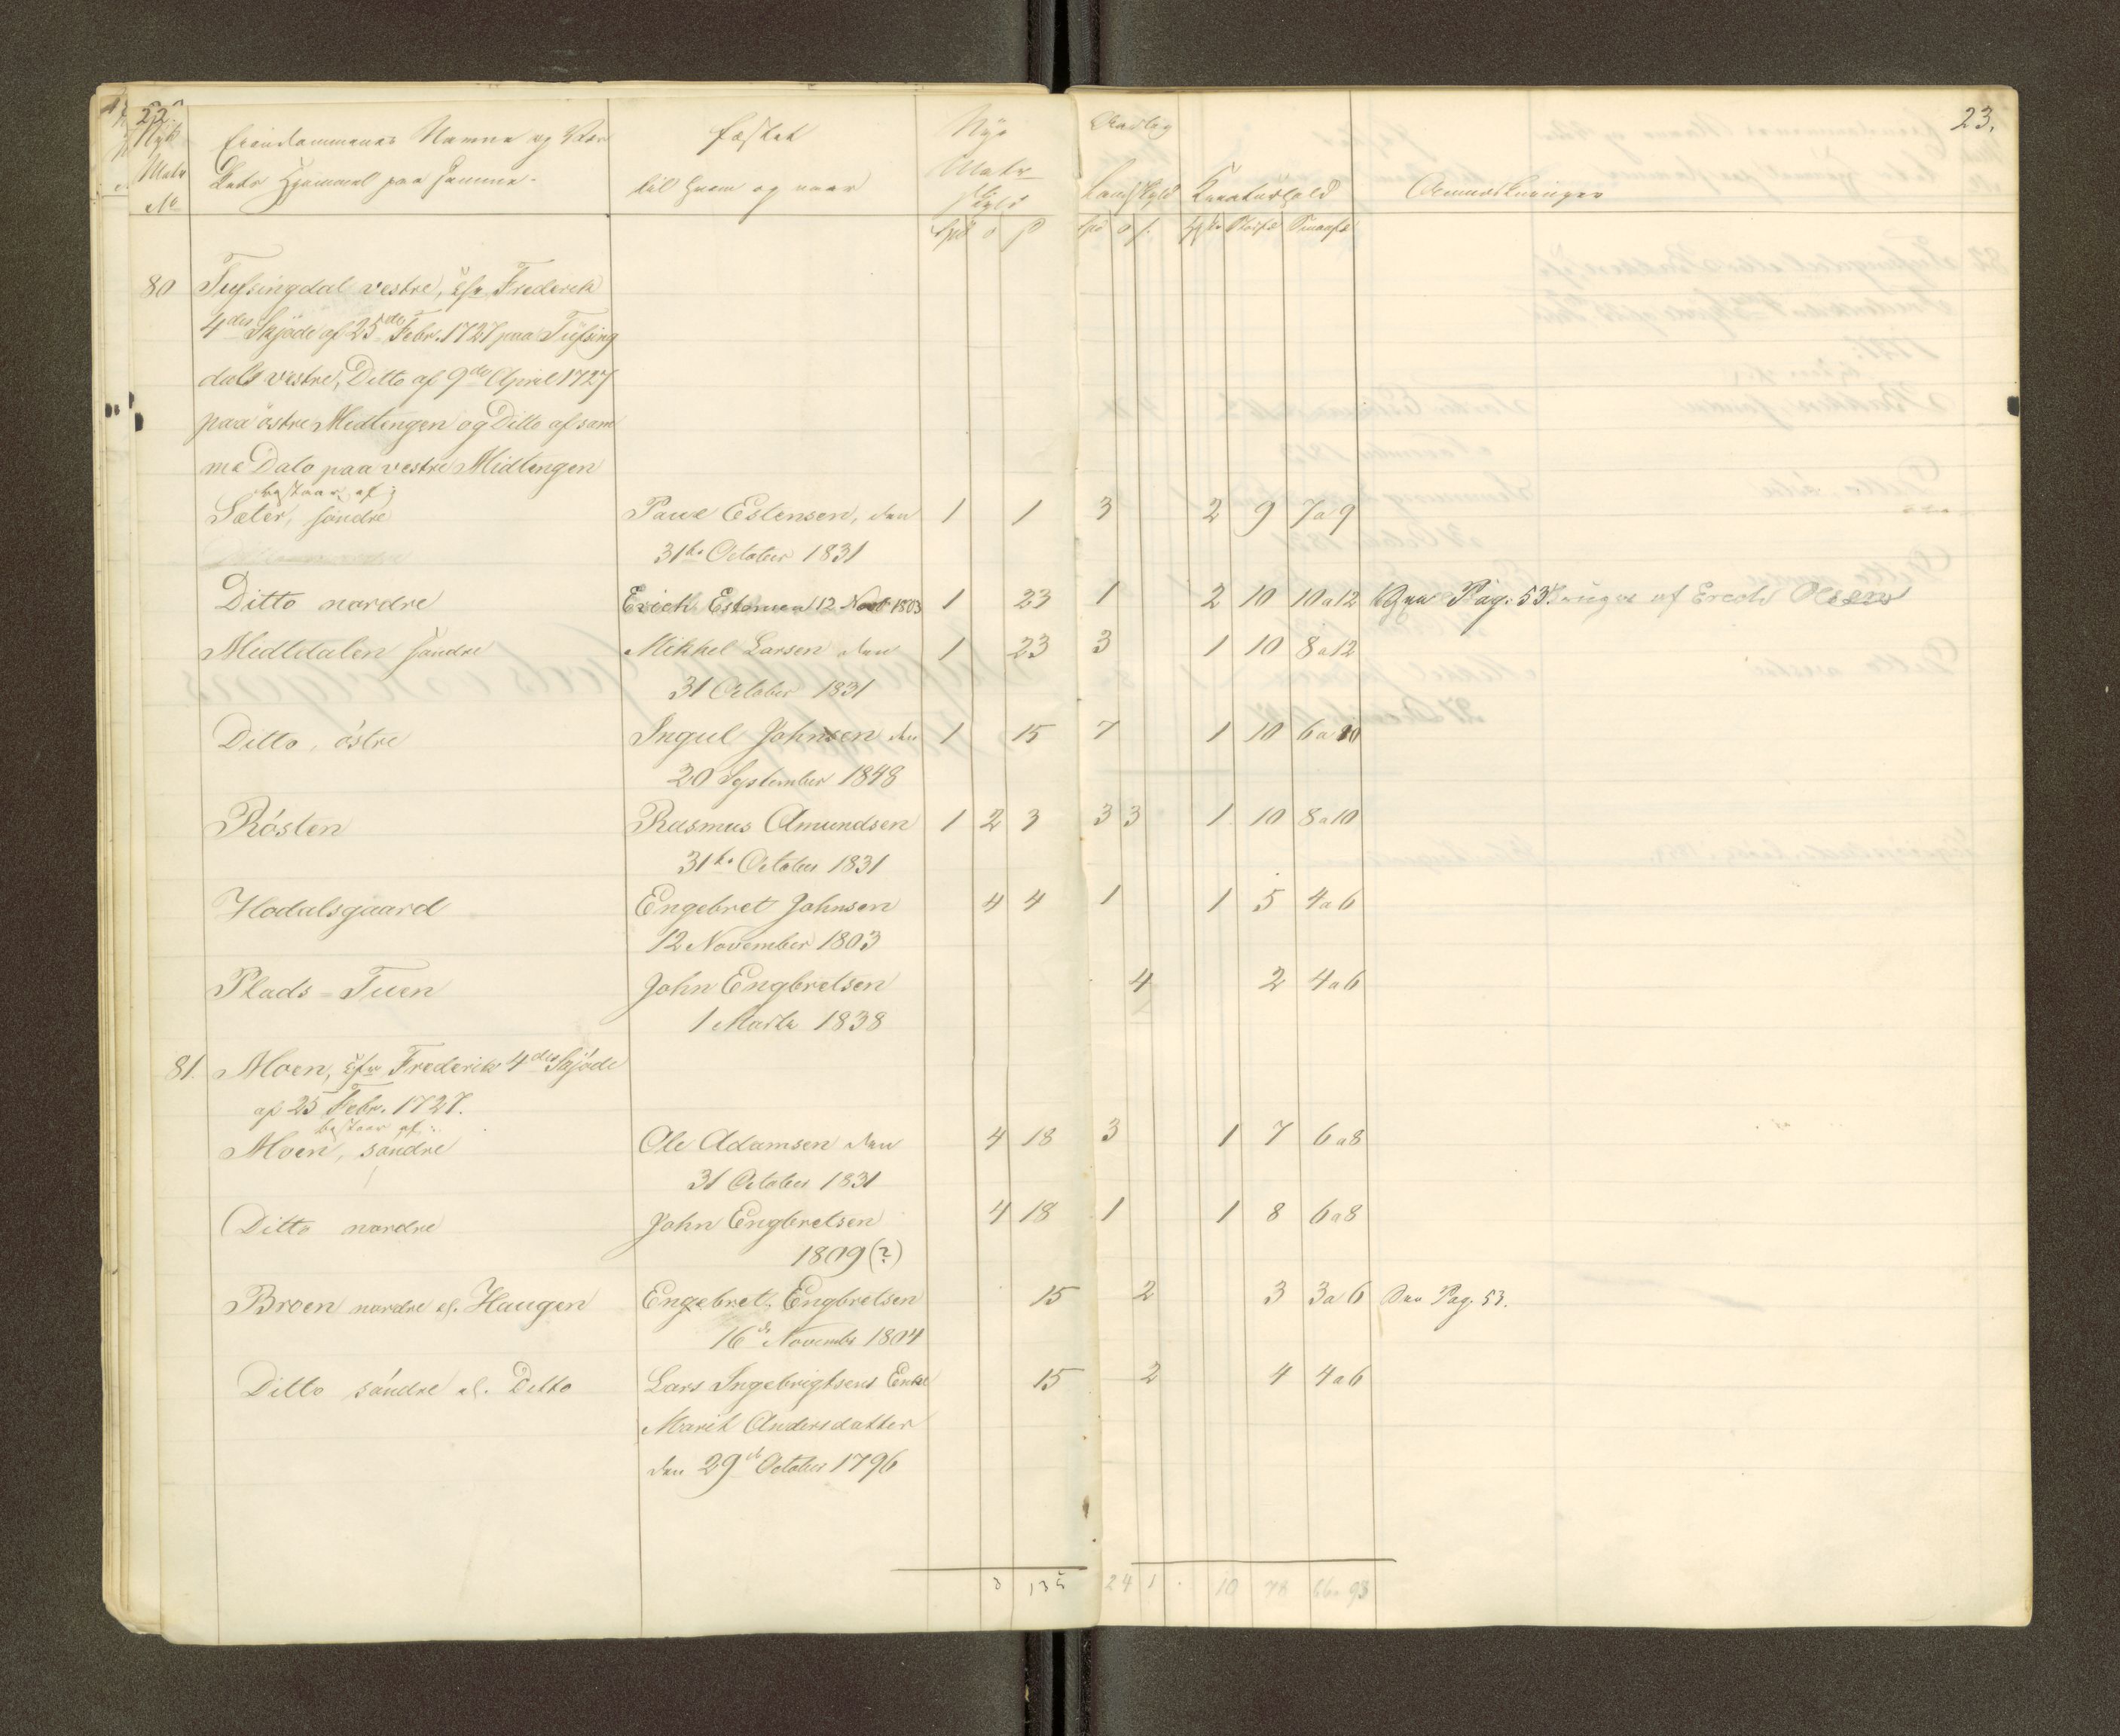 22.
23.
Nye Matr No
Eiendommenes Navne og
Hjemmel paa samme.
fæstet
til hvem og naar
Nye
Matr
skyld
Aarlig
Landskyld
Kreaturhold
Anmærkninger
Spd o s
Spd o s. Heste Storfæ Smaafæ
80 Tufsingdal vestre, efter Frederik
4des Skjöde af 25de Febr. 1727 paa Tufsing
dals vestre, Ditto af 9de April 1727
paa östre Midtengen og Ditto af sam
me Dato paa vestre Midtengen
bestaar af:
Sæter, söndre Paul Estensen, den 1 1 3 2 9 7a9
31te October 1831
Ditto nordre Erich Estensen 12 Novb 1803 1 23 1 2 10 10a12 Pag. 53. bruges af Erich Olsen
Midtdalen söndre Mikkel Larsen den 1 23 3 1 10 8a12
31 October 1831
Ditto, östre Ingul Johnsen den 1 15 7 1 10 6a10
20 September 1848
Rösten Rasmus Amundsen 1 2 3 3 3 1 10 8a10
31te October 1831
Hodalsgaard Engebret Johnsen 4 4 1 1 5 4a6
12 November 1803
Plads-Tuen John Engbretsen 4 2 4a6
1 Marts 1838
81. Moen, efter Frederik 4des Skjöde
af 25 Febr. 1727.
bestaar af:
Moen, söndre Ole Adamsen den 4 18 3 1 7 6a8
31 October 1831
Ditto nordre John Engbretsen 4 18 1 1 8 6a8
1809 (?)
Broen nordre el. Haugen Engebret Engbretsen 15 2 3 3a6 Pag. 53.
16de Novembr 1804
Ditto söndre el. Ditto Lars Ingebrigtsens Enke 15 2 4 4a6
Marit Andersdatter
den 29de October 1796
8 135 24 1 10 78 66a93